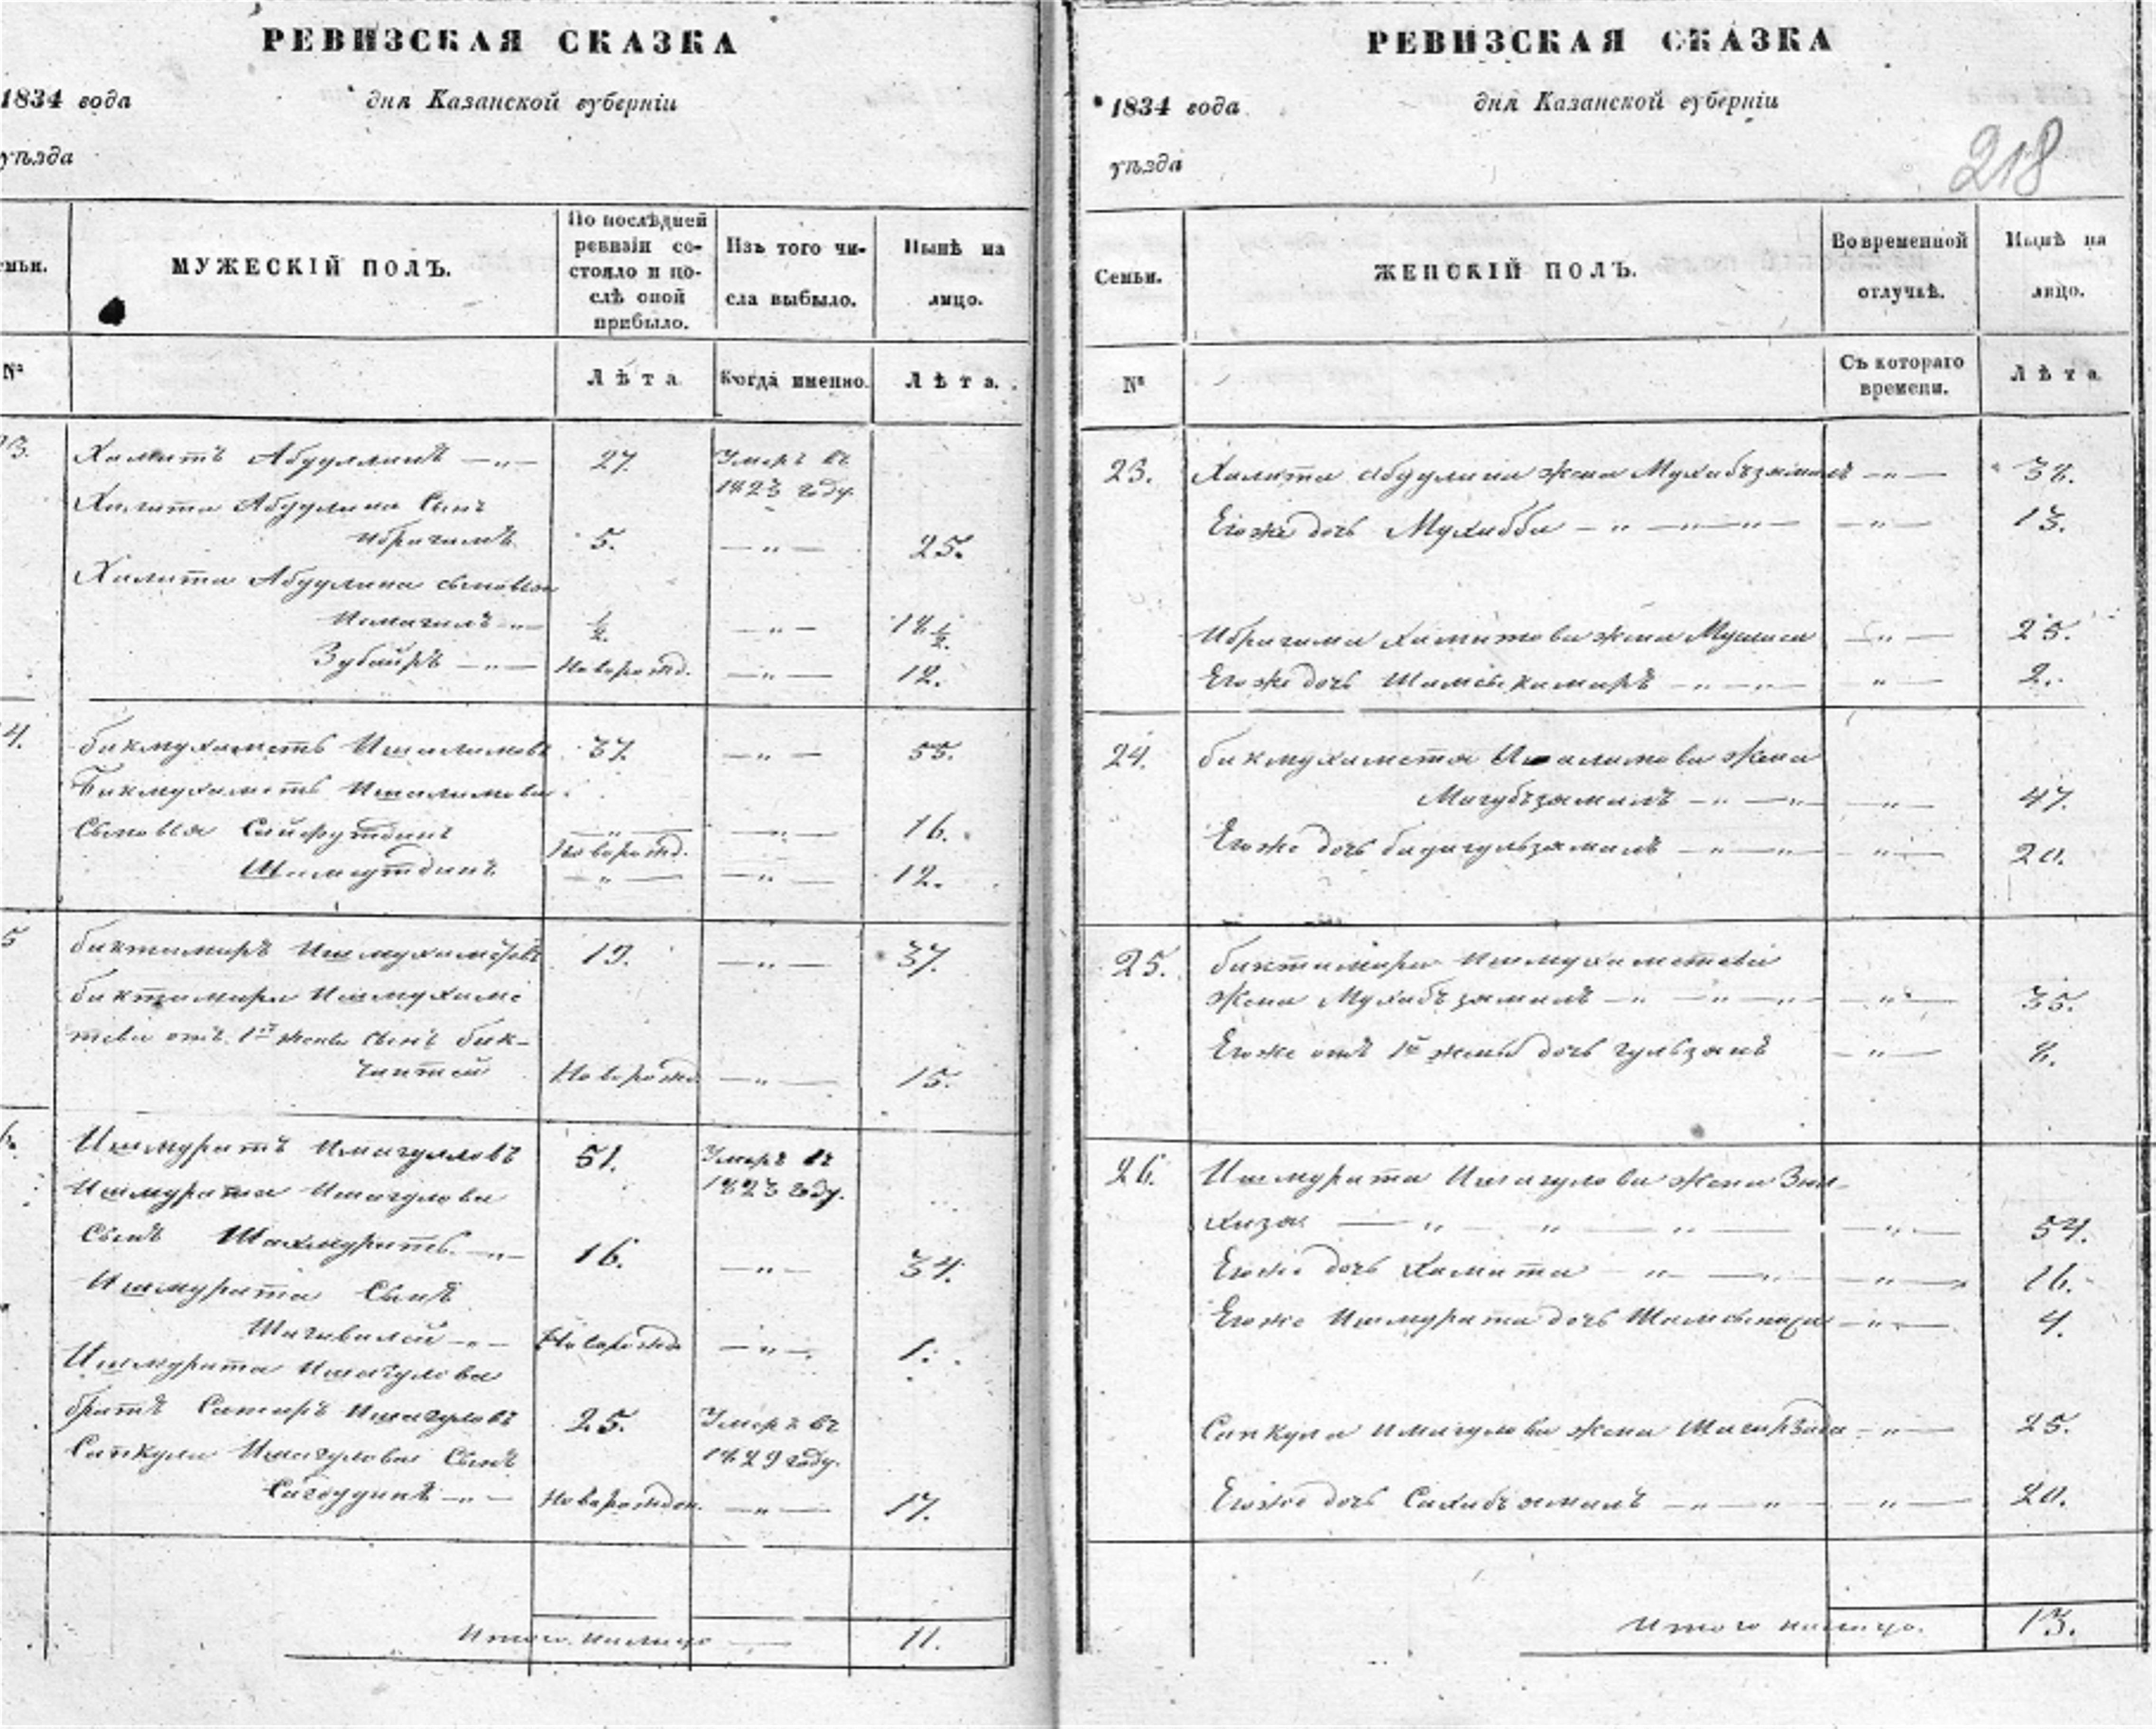 РЕВИЗСКАЯ СКАЗКА
1834 года дня Казанской губерніи
уѣзда
мьи.
МУЖЕСКІЙ ПОЛЪ.
По послѣдней ревизіи со-
стояло и по-
слѣ оной
прибыло.
Изъ того чи-
сла выбыло.
Нынѣ на
лицо.
№
Лѣта
Когда именно.
Лѣта.
3. Халитъ Абдуллинъ 27. Умеръ въ
1823 году.
Халита Абдулина сынъ
Ибрагимъ 5. 25.
Халита Абдулина сыновья
Исмагилъ ½. 18½.
Зубаиръ Новорожд. 12.
4. бикмухаметъ Ишалимовъ 37. 55.
Бикмухаметъ Ишалимова
сыновья Сайфутдинъ Новорожд. 16.
Шамсутдинъ 12.
5 биктимиръ Ишмухаметовъ 19. 37.
биктимира Ишмухаме
тева отъ 1й жены сынъ бик-
Новорожд 15.
Ишмуратъ Ишагуловъ 51. Умеръ въ
1823 году.
Ишмурата Ишагулова
сынъ Шахмуратъ 16. 34.
Ишмурата сынъ
Шагивалей Новорожд 1.
Ишмурата Ишагулова
братъ Ишагуловъ 25. Умеръ въ
1829 году.
Сапкула Ишагулова сынъ
Новорожден. 17.
Итого налицо 11.
РЕВИЗСКАЯ СКАЗКА
1834 года дня Казанской губерніи
уѣзда
218
Семьи.
ЖЕНСКІЙ ПОЛЪ.
Во временной
отлучкѣ.
Нынѣ на
лицо.
№
Съ котораго
времени.
Лѣта
23. Халита Абдулина жена Мухибъзямалъ 38.
Егоже дочь Мухибба 13.
Ибрагима Халитова жена 25.
Егоже дочь Шамсыкамаръ 2.
24. бикмухаметя Ишалимова жена
Магубъзямалъ 47.
Егоже дочь бадигульзямалъ 20.
25. биктимира Ишмухаметева
жена Мухибъзямалъ 35.
Егоже отъ 1й жены дочь гульзянъ 8.
26. Ишмурата Ишагулова жена Зюл-
хиза 54.
Егоже дочь Халита 16.
Егоже Ишмурата дочь 4.
Сапкула Ишагулова жена 25.
Егоже дочь Сахибъямалъ 20.
Итого налицо. 13.